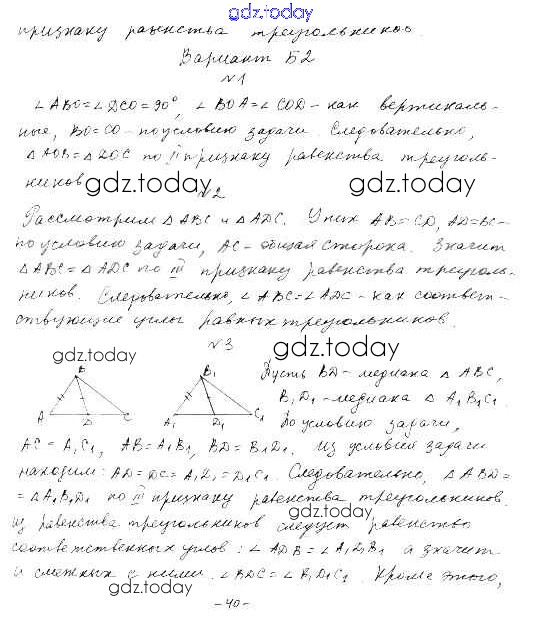 gdz.today
признаку равенства треугольников.
Вариант Б2
№1
∠ABO=∠DCO=90°, ∠BOA=∠COD - как вертикаль-
ные, BO=CO - по условию задачи. Следовательно,
△AOB=△DOC по II признаку равенства треуголь-
ников
gdz.today gdz.today
№2
Рассмотрим △ABC и △ADC. У них AB=CD, AD=BC-
по условию задачи, AC - общая сторона. Значит
△ABC=△ADC по III признаку равенства треуголь-
ников. Следовательно, ∠ABC=∠ADC - как соответ-
ствующие углы равных треугольников.
№3
gdz.today gdz.today
B B₁
A D C A₁ D₁ C₁
Пусть BD - медиана △ABC,
B₁D₁ - медиана △A₁B₁C₁.
По условию задачи,
AC=A₁C₁, AB=A₁B₁, BD=B₁D₁. Из условия задачи
находим: AD=DC=A₁D₁=D₁C₁. Следовательно, △ABD=
=△A₁B₁D₁ по III признаку равенства треугольников.
gdz.today
Из равенства треугольников следует равенство
соответственных углов: ∠ADB=∠A₁D₁B₁ а значит
и смежных с ними. ∠BDC=∠B₁D₁C₁. Кроме этого,
gdz.today
- 40 -